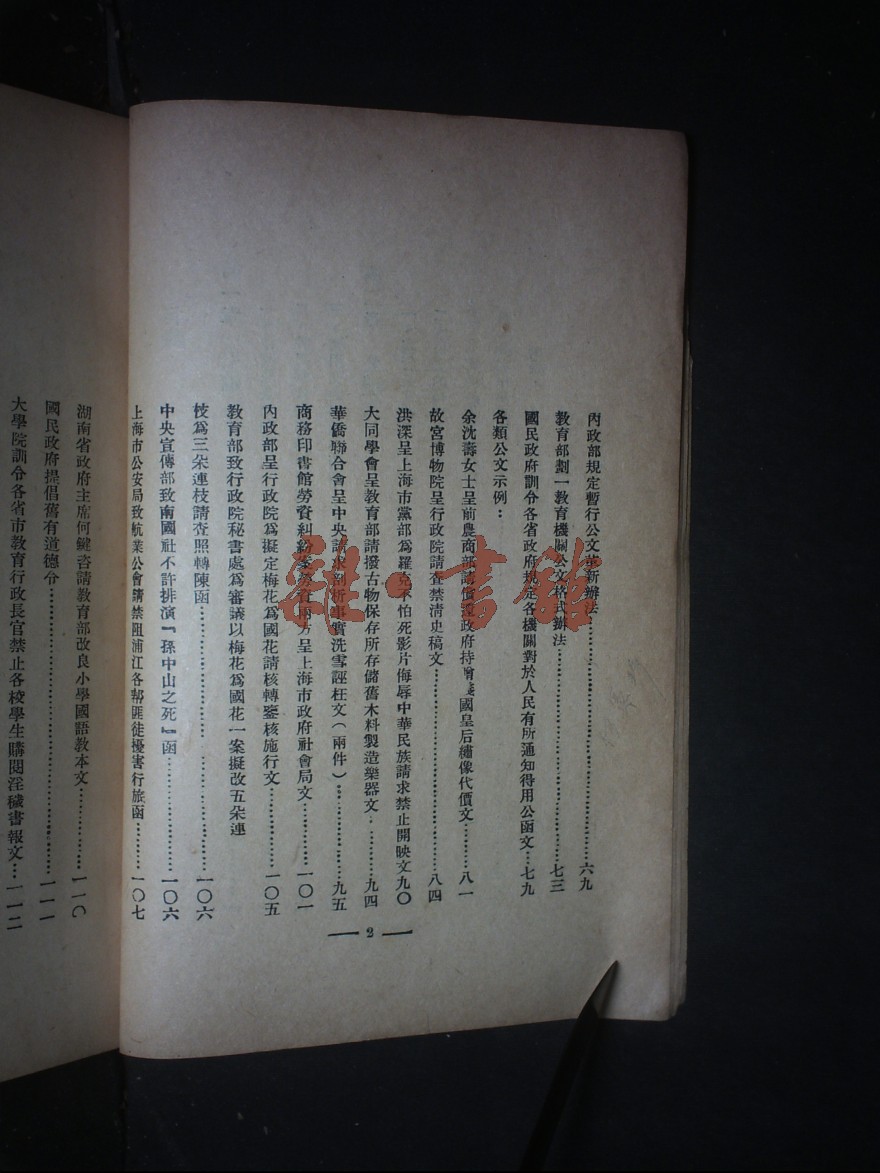 內政部規定暫行公文革新辦法……六九
教育部劃一教育機關公文格式辦法……七三
國民政府訓令各省政府規定各機關對於人民有所通知得用公函文…七九
各類公文示例：
余沈壽女士呈前農商部請償還政府持贈義國皇后繡像代價文…八一
故宮博物院呈行政院請查禁淸史稿文……八四
洪深呈上海市黨部為羅克不怕死影片侮辱中華民族請求禁止開映文九〇
大同學會呈教育部請撥古物保存所存儲舊木料製造樂器文…九四
華僑聯合會呈中央請求剖析事實洗雪誣枉文（兩件）……九五
商務印書館勞資糾紛案勞資兩方呈上海市政府社會局文……一〇一
內政部呈行政院為擬定梅花為國花請核轉鑒核施行文……一〇五
教育部致行政院秘書處為審議以梅花為國花一案擬改五朵連
枝為三朵連枝請查照轉陳函……一〇六
中央宣傳部致南國社不許排演『孫中山之死』函……一〇六
上海市公安局致航業公會請禁阻浦江各幫匪徒擾害行旅函……一〇七
— 2 —
湖南省政府主席何鍵咨請教育部改良小學國語教本文……一一〇
國民政府提倡舊有道德令……一一一
大學院訓令各省市教育行政長官禁止各校學生購閱淫穢書報文…一一二
雜·書館